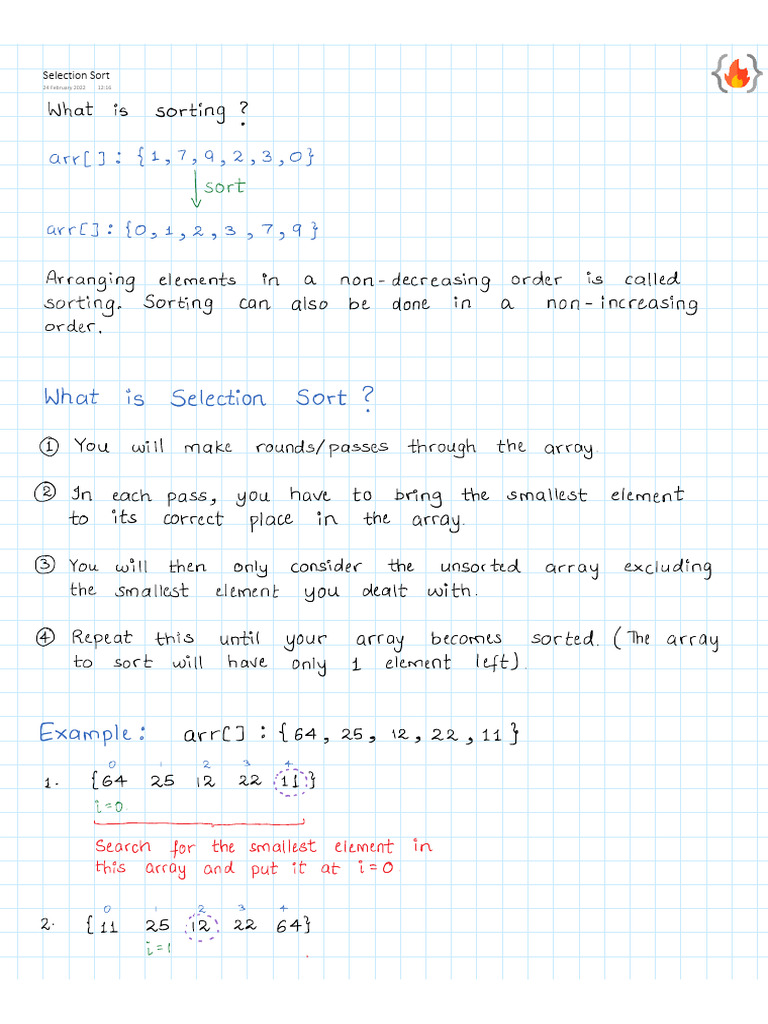 Selection Sort
24 February 2022 12:16
What is sorting?
arr[]: {1,7,9,2,3,0}
sort
arr[]: {0,1,2,3,7,9}
Arranging elements in a non-decreasing order is called
sorting. Sorting can also be done in a non-increasing
order.
What is Selection Sort?
① You will make rounds/passes through the array.
② In each pass, you have to bring the smallest element
to its correct place in the array.
③ You will then only consider the unsorted array excluding
the smallest element you dealt with.
④ Repeat this until your array becomes sorted. (The array
to sort will have only 1 element left).
Example: arr[] : {64, 25, 12, 22, 11}
0 1 2 3 4
1. {64 25 12 22 11}
i=0
Search for the smallest element in
this array and put it at i=0
0 1 2 3 4
2. {11 25 12 22 64}
i=1